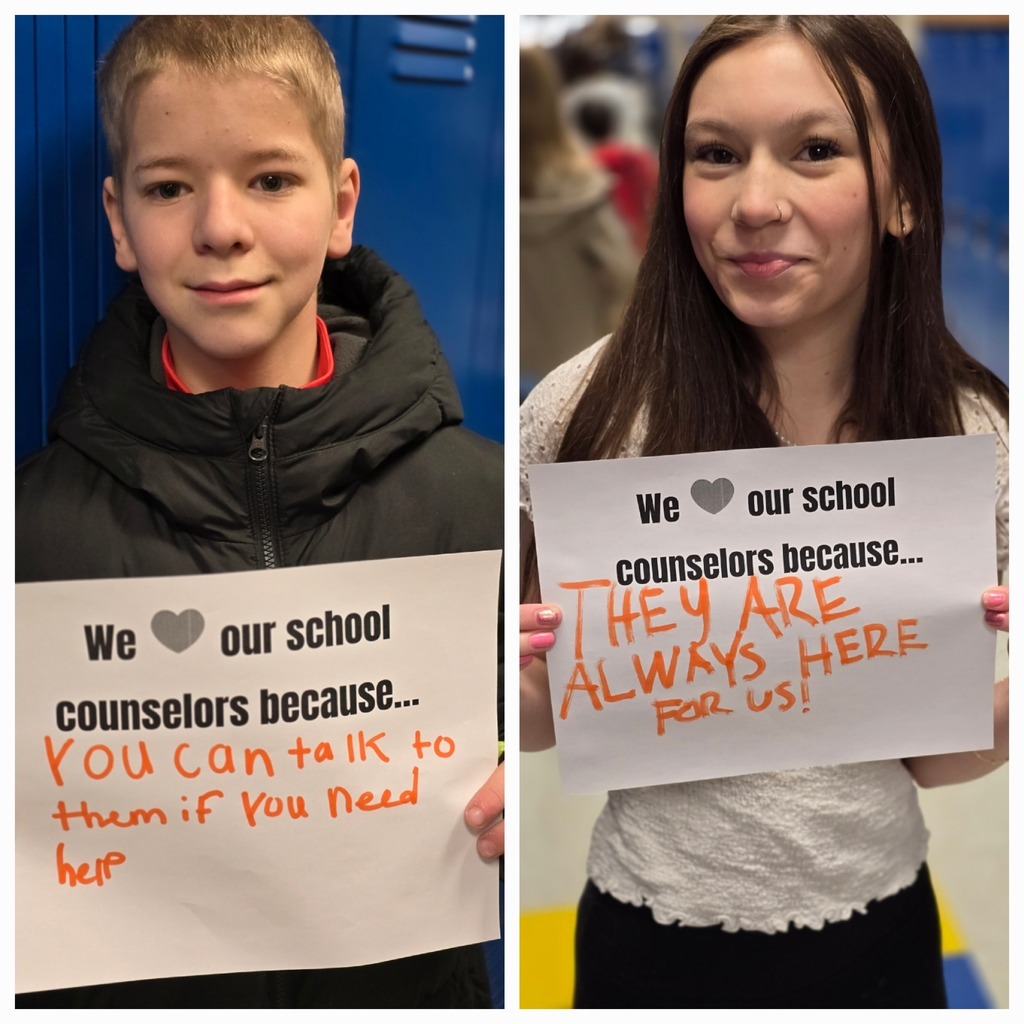 We ♥ our school
counselors because...
You can talk to
them if you need
help
We ♥ our school
counselors because...
THEY ARE
ALWAYS HERE
FOR US!